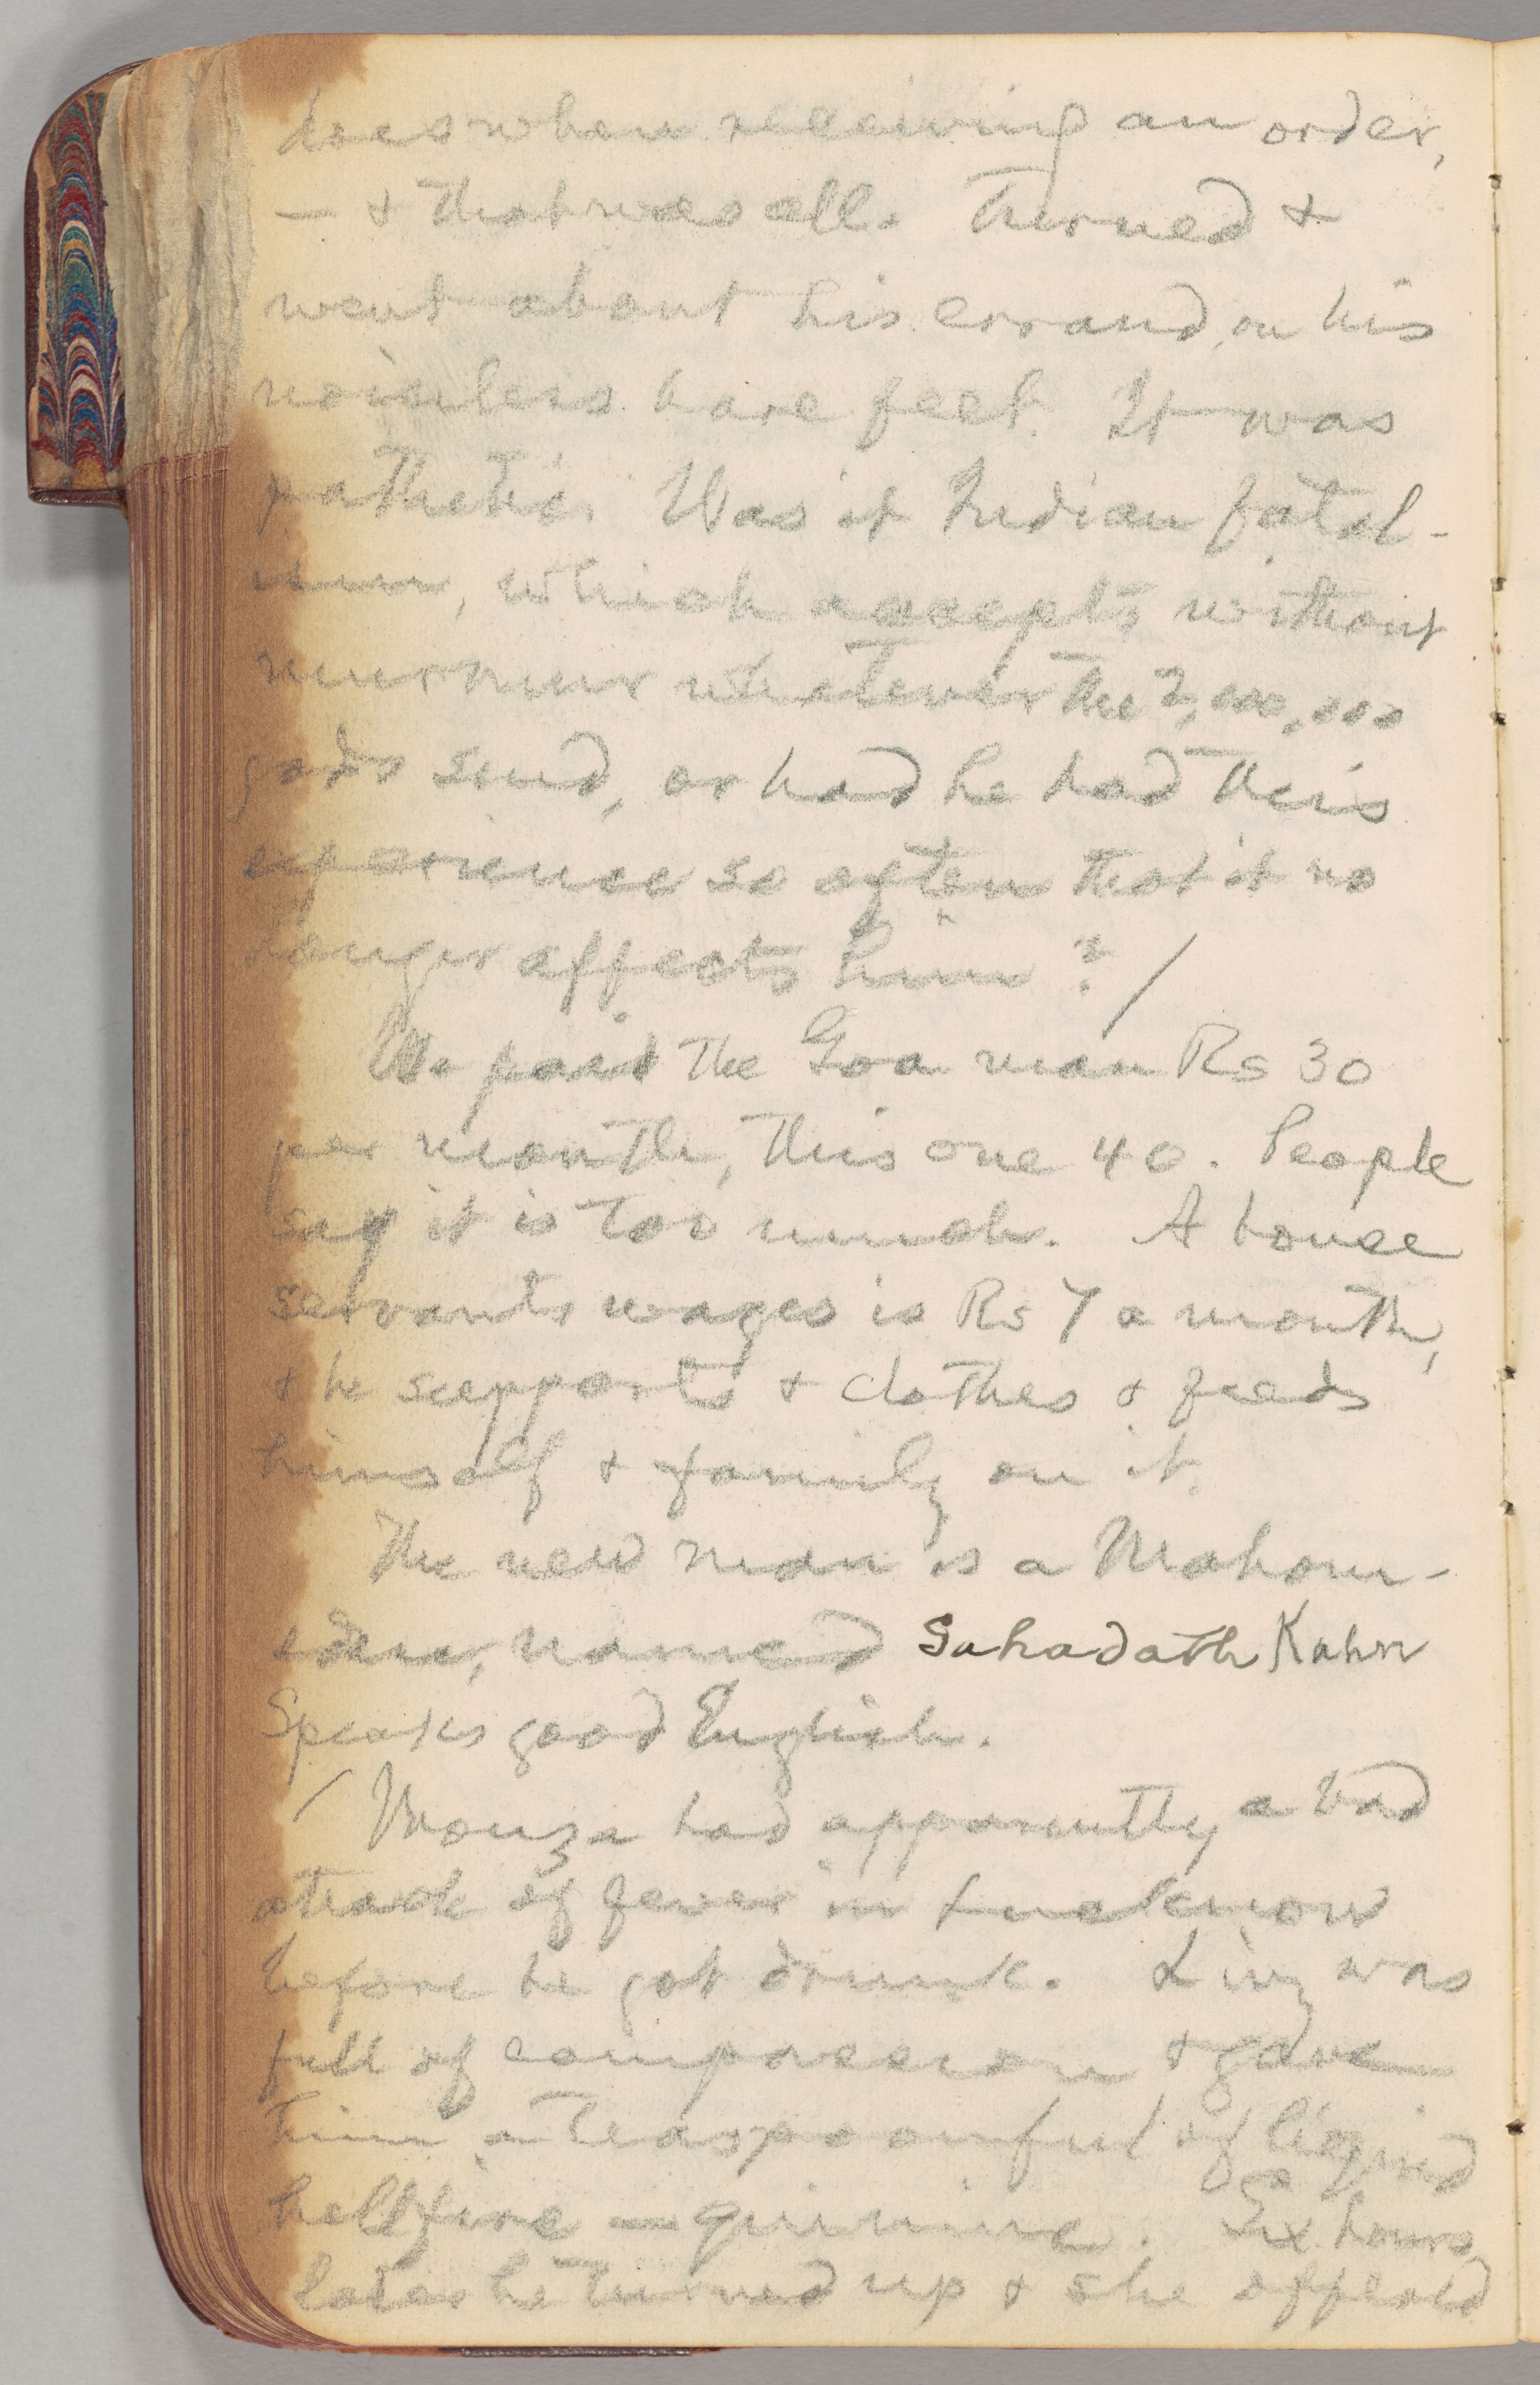 does when receiving an order,
— & that was all. Turned &
went about his errand, on his
noiseless bare feet. It was
pathetic. Was it Indian fatal-
ism, which accepts without
murmur whatever the 2,000,000
gods send, or had he had this
experience so often that it no
longer affects him? /
We paid the Goa man Rs 30
per month, this one 40. People
say it is too much. A house
servants wages is Rs 7 a month,
& he supports & clothes & feeds
himself & family on it.
The new man is a Mahom-
edan, named Sahadath Kahn
Speaks good English.
/ Mouza had apparently a bad
attack of fever in Lucknow
before he got drunk. Livy was
full of compassion & gave
him a teaspoonful of liquid
hellfire — quinine. Six hours
later he turned up & she offered